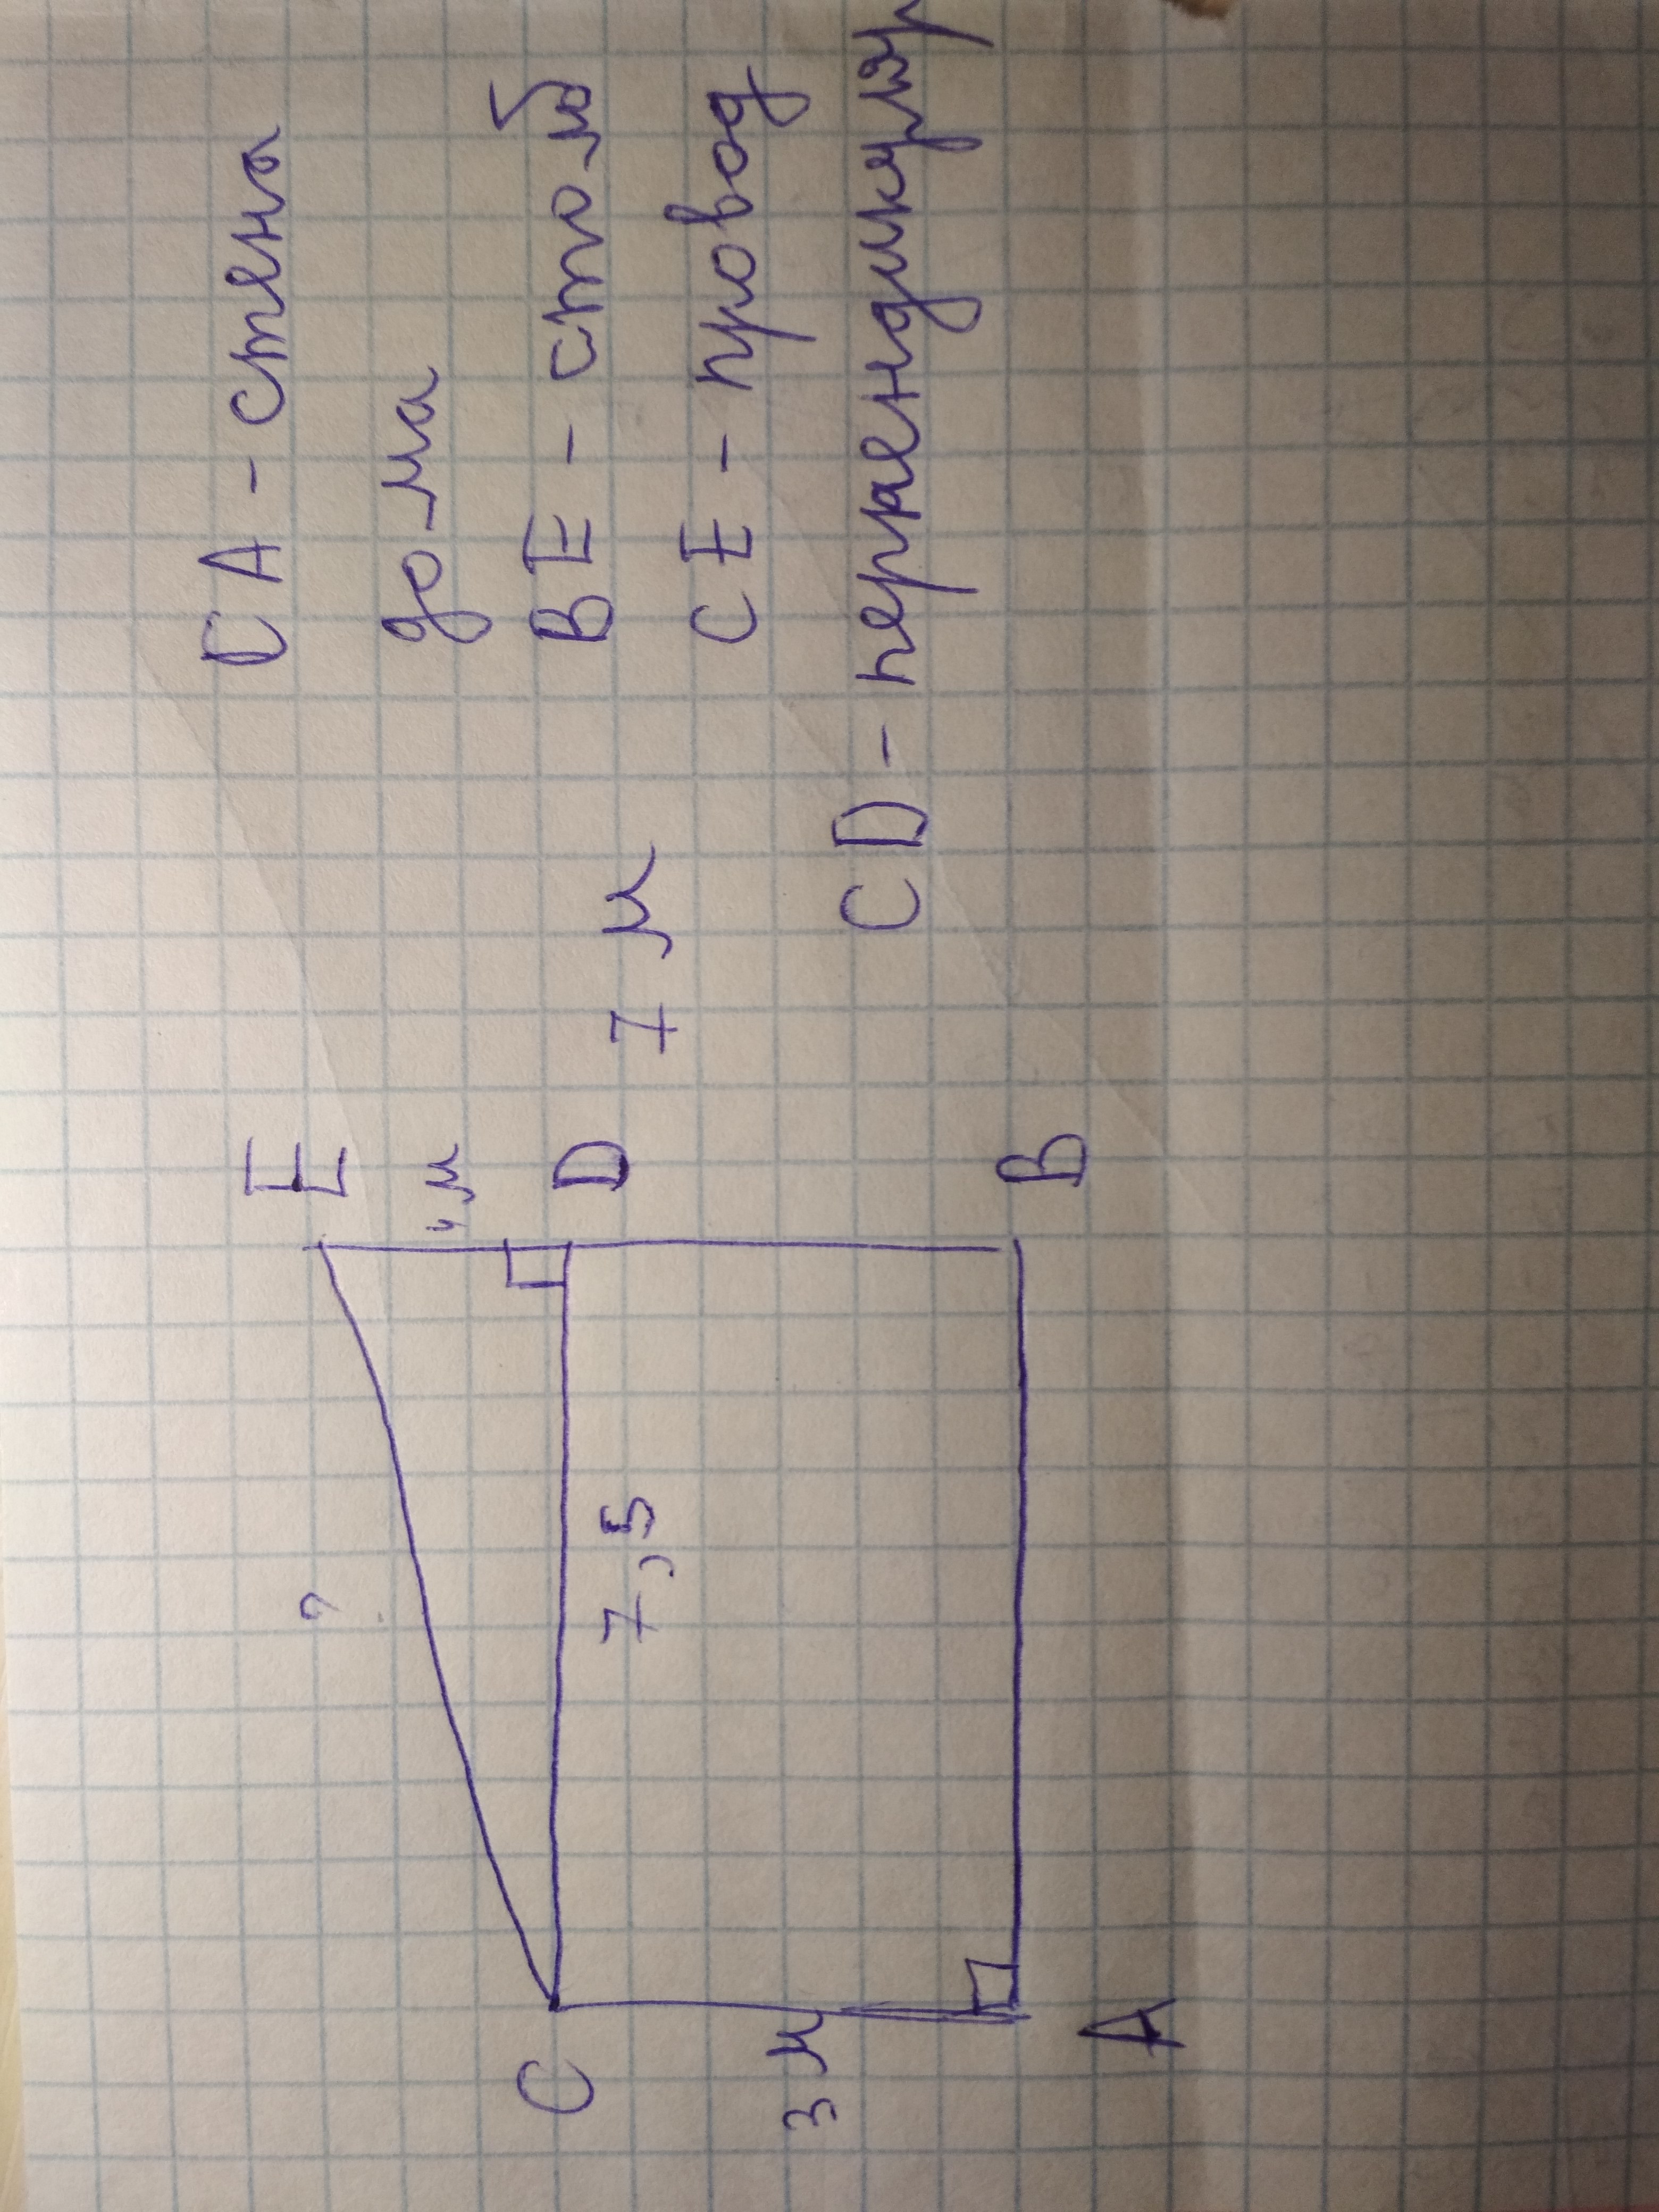 CA - стена
дома
BE - столб
CE - провод
CD - перпендикуляр
E
м
D
7 м
B
?
7,5
C
3 м
A